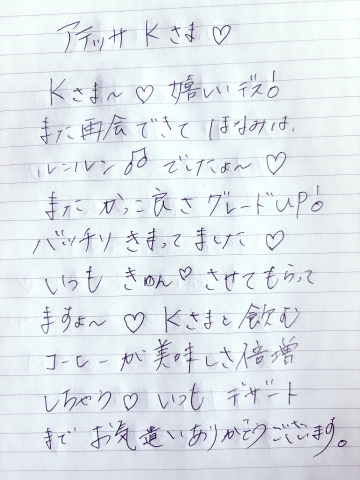 アデッサ Kさま♡
Kさま〜♡ 嬉しいデス!
また再会できて ほなみは、
ルンルン♫ でしたょ〜♡
また かっこ良さ グレードUP!
バッチリ きまってました♡
いつも きゅん♡ させてもらって
ますょ〜♡ Kさまと飲む
コーヒーが美味しさ倍増
しちゃう♡ いつも デザート
まで お気遣いありがとうございます。